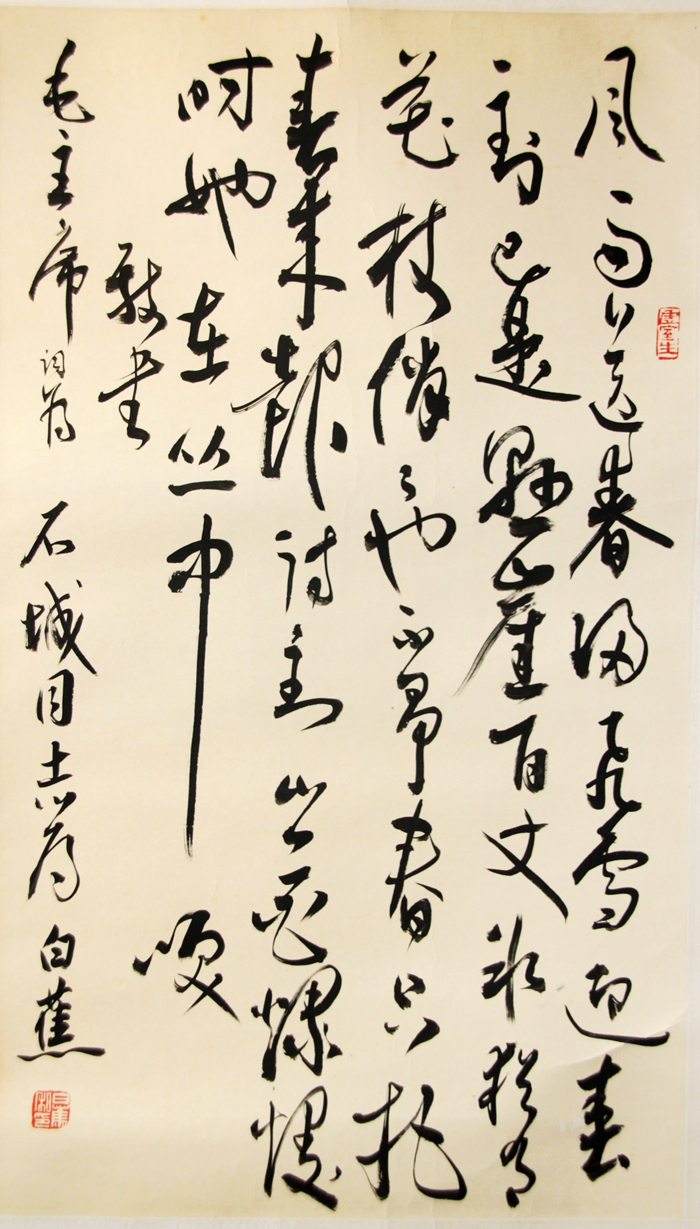 风雨送春归飞雪迎春
到已是悬崖百丈冰犹有
花枝俏〻也不争春只把
春来報待到山花爛熳
时她在丛中咲
敬书
毛主席词为 石城同志属 白蕉